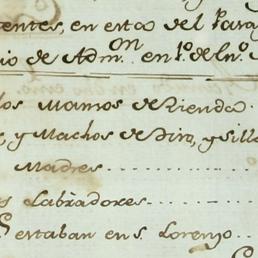 entes, en estos del Parag
io de Adm.on en 1.o de En.o
los Mansos de Rienda
s, y Machos de tiro, y silla
Madres
s Labradores
estaban en S. Lorenzo